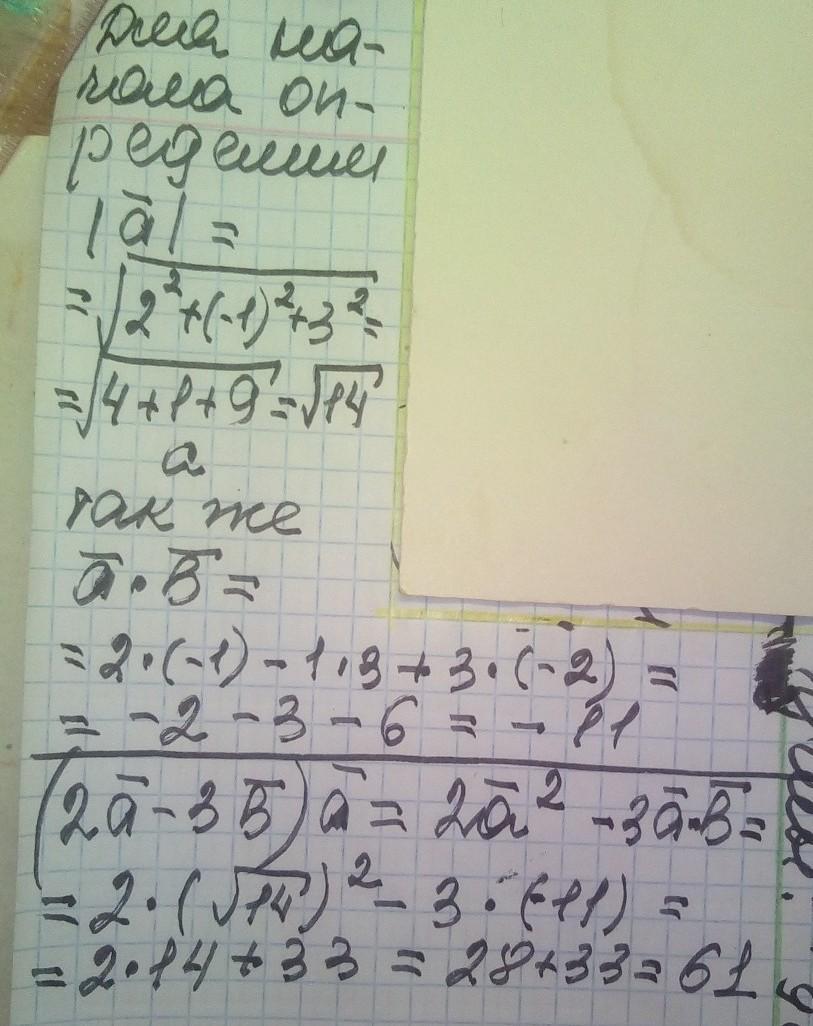 Для на-
чала оп-
ределим
|a̅| =
= √(2² + (-1)² + 3²) =
= √(4 + 1 + 9) = √14
а
так же
a̅ · b̅ =
= 2 · (-1) - 1 · 3 + 3 · (-2) =
= - 2 - 3 - 6 = - 11
(2a̅ - 3b̅) a̅ = 2a̅² - 3a̅·b̅ =
= 2 · (√14)² - 3 · (-11) =
= 2 · 14 + 33 = 28 + 33 = 61